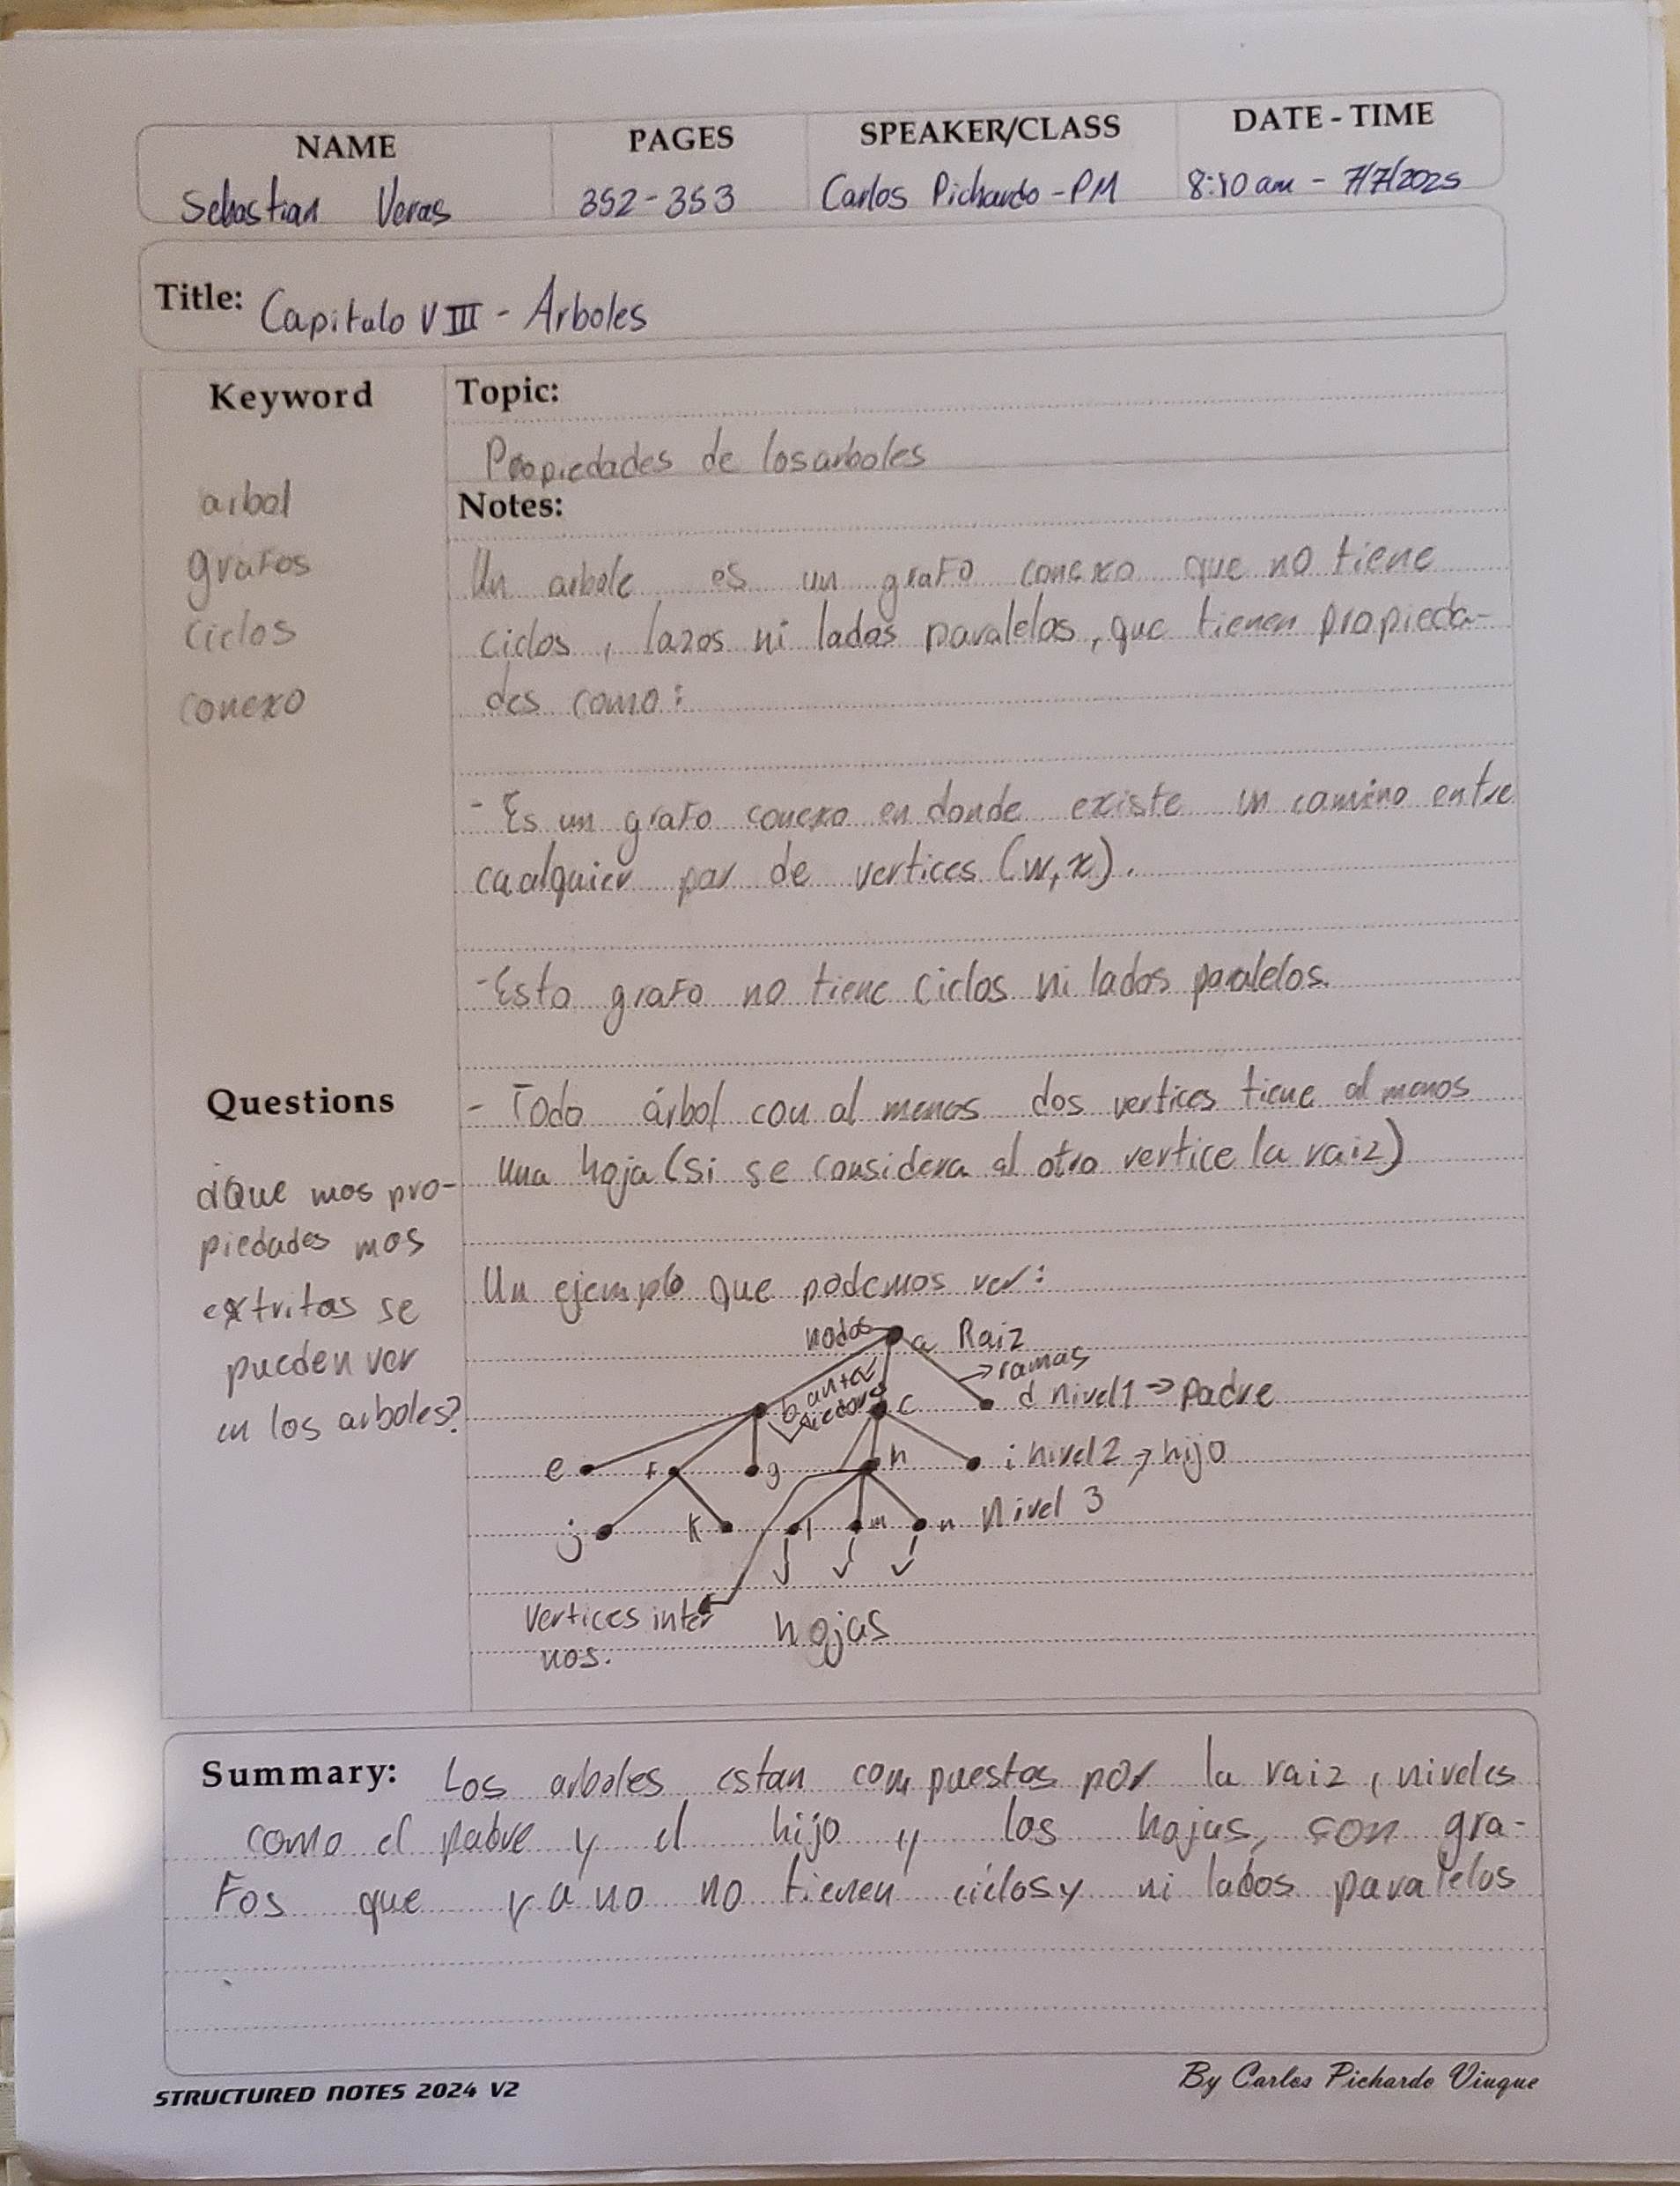 NAME PAGES SPEAKER/CLASS DATE - TIME
Sebastian Veras 352-353 Carlos Pichardo-PM 8:10 am - 7/7/2025
Title: Capitulo VIII - Arboles
Keyword
arbol
grafos
ciclos
conexo
Topic:
Propiedades de los arboles
Notes:
Un arbole es un grafo conexo que no tiene
ciclos, lazos ni lados paralelos, que tienen propieda-
des como:
- Es un grafo conexo en donde existe un camino entre
cualquier par de vertices (w,x).
- Esto grafo no tiene ciclos ni lados paralelos.
- Todo árbol con al menos dos vertices tiene al menos
una hoja (si se considera al otro vertice la raiz)
Un ejemplo que podemos ver:
nodos a Raiz
→ ramas
b antecedores c d nivel1 → Padre
e f g h i nivel2 → hijo
j k l m n Nivel 3
Vertices inter
nos.
hojas
Questions
¿Que mos pro-
piedades mas
extritas se
pueden ver
en los arboles?
Summary: Los arboles estan compuestos por la raiz, niveles
como el padre y el hijo y las hojas, son gra-
Fos que ya no no tienen ciclos y ni lados paralelos
STRUCTURED NOTES 2024 V2
By Carlos Pichardo Viuque